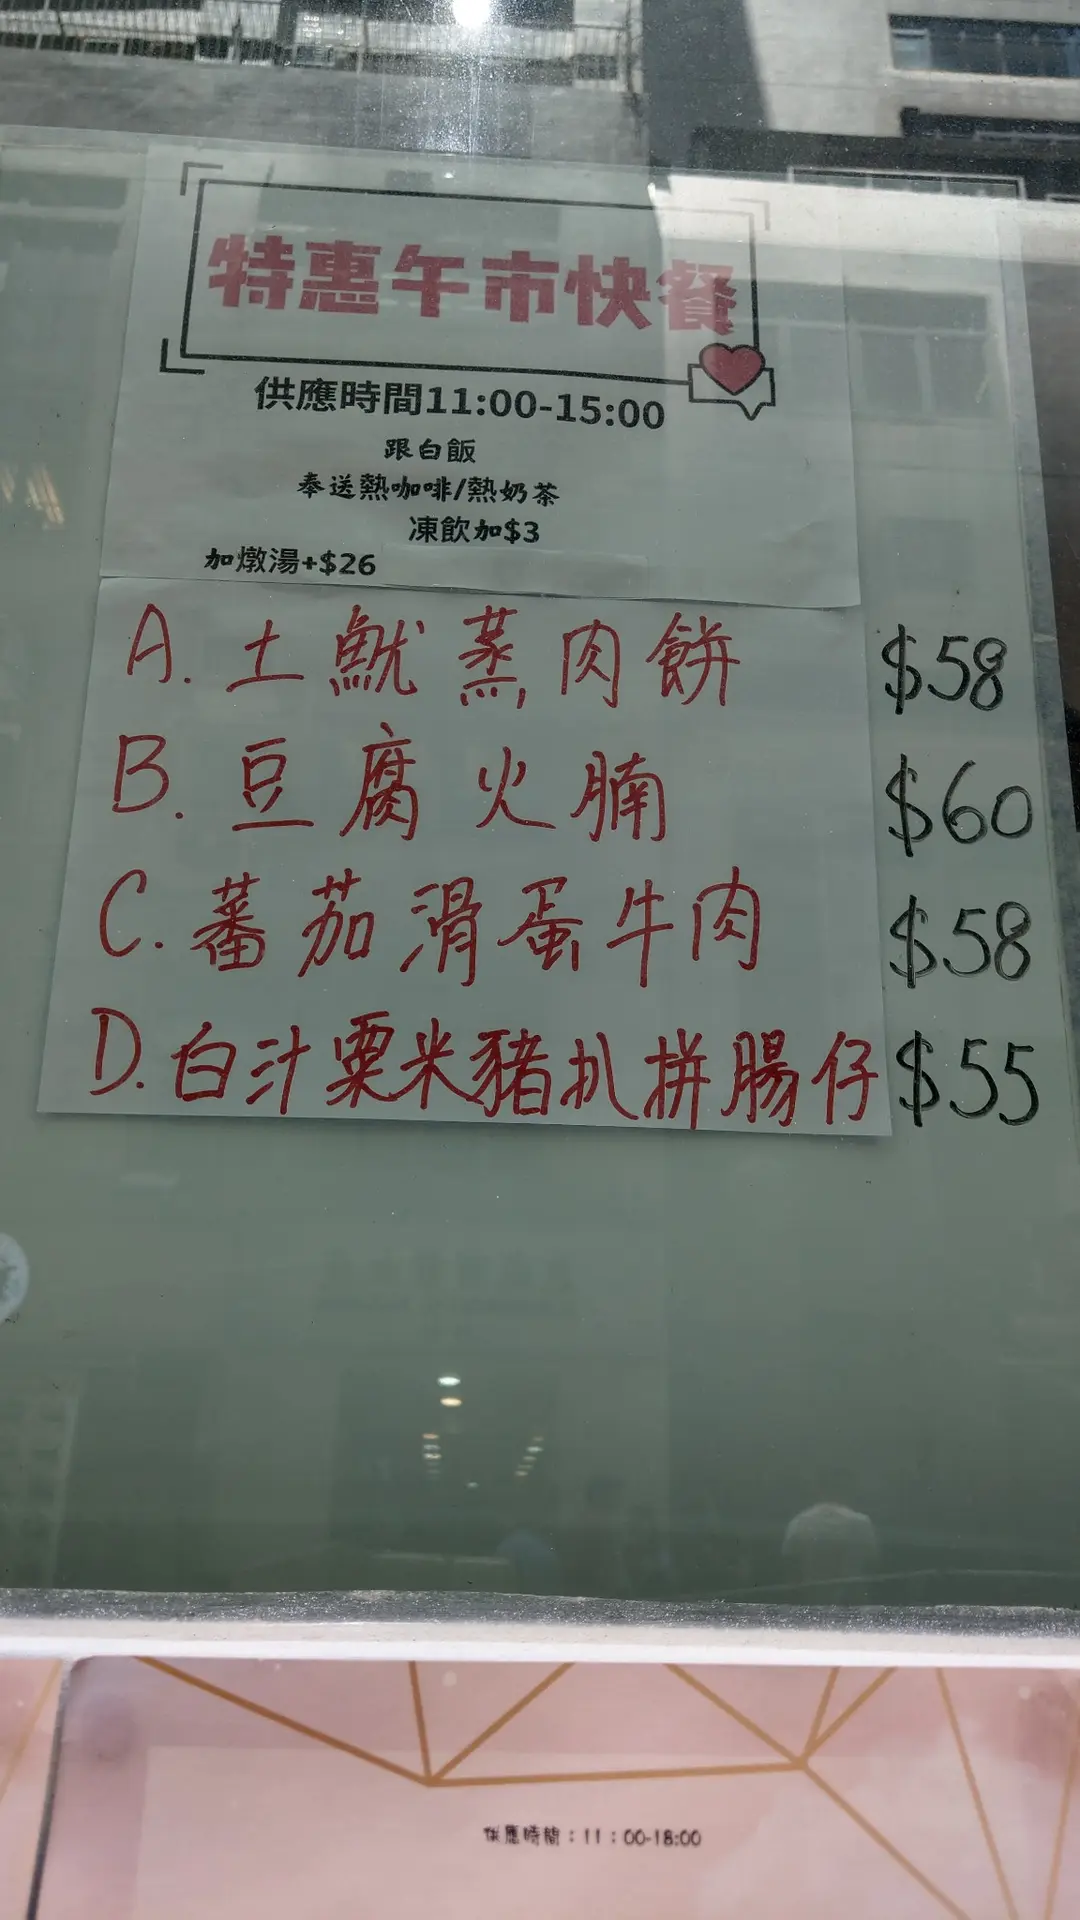 特惠午市快餐
供應時間11:00-15:00
跟白飯
奉送熱咖啡/熱奶茶
凍飲加$3
加燉湯+$26
A. 土魷蒸肉餅 $58
B. 豆腐火腩 $60
C. 蕃茄滑蛋牛肉 $58
D. 白汁粟米豬扒拼腸仔 $55
供應時間：11：00-18:00